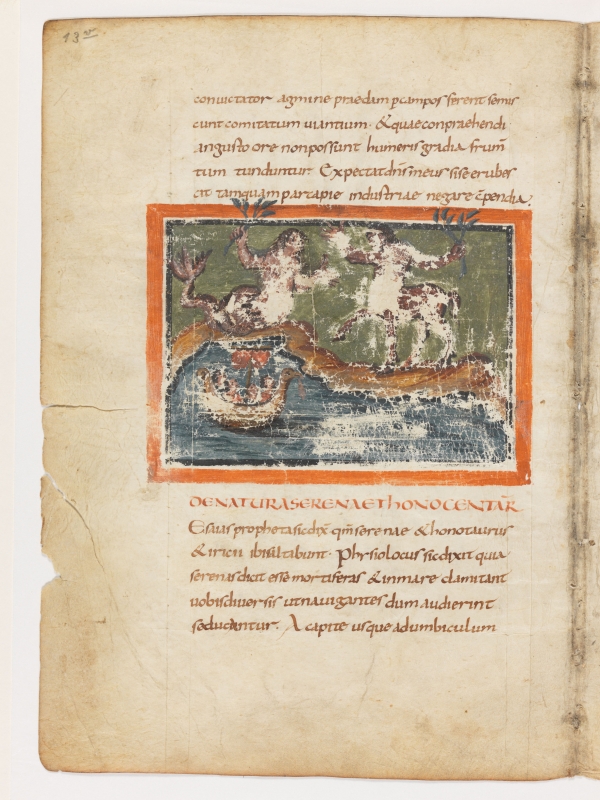 13 v
convictator agmine praedam p campos ferent semis
cunt comitatum uiantium · & quae conpraehendi
angusto ore non possunt humeris gradia frum̄
tum tunduntur Expectat dn̄s meus si se erubes
cit tamquam par tapie industriae negare c̄pendia;
DE NATURA SERENAE ET hONOCENTAR̄
Esaias propheta sic dix̄ qm̄ serenae & honotaurus
& iricii ibi saltabunt · Phisiolocus sic dixit quia
serenas dicit esse mortiferas & in mare clamitant
uobis diuersis ut nauigantes dum audierint
seducantur · A capite usque ad umbiculum